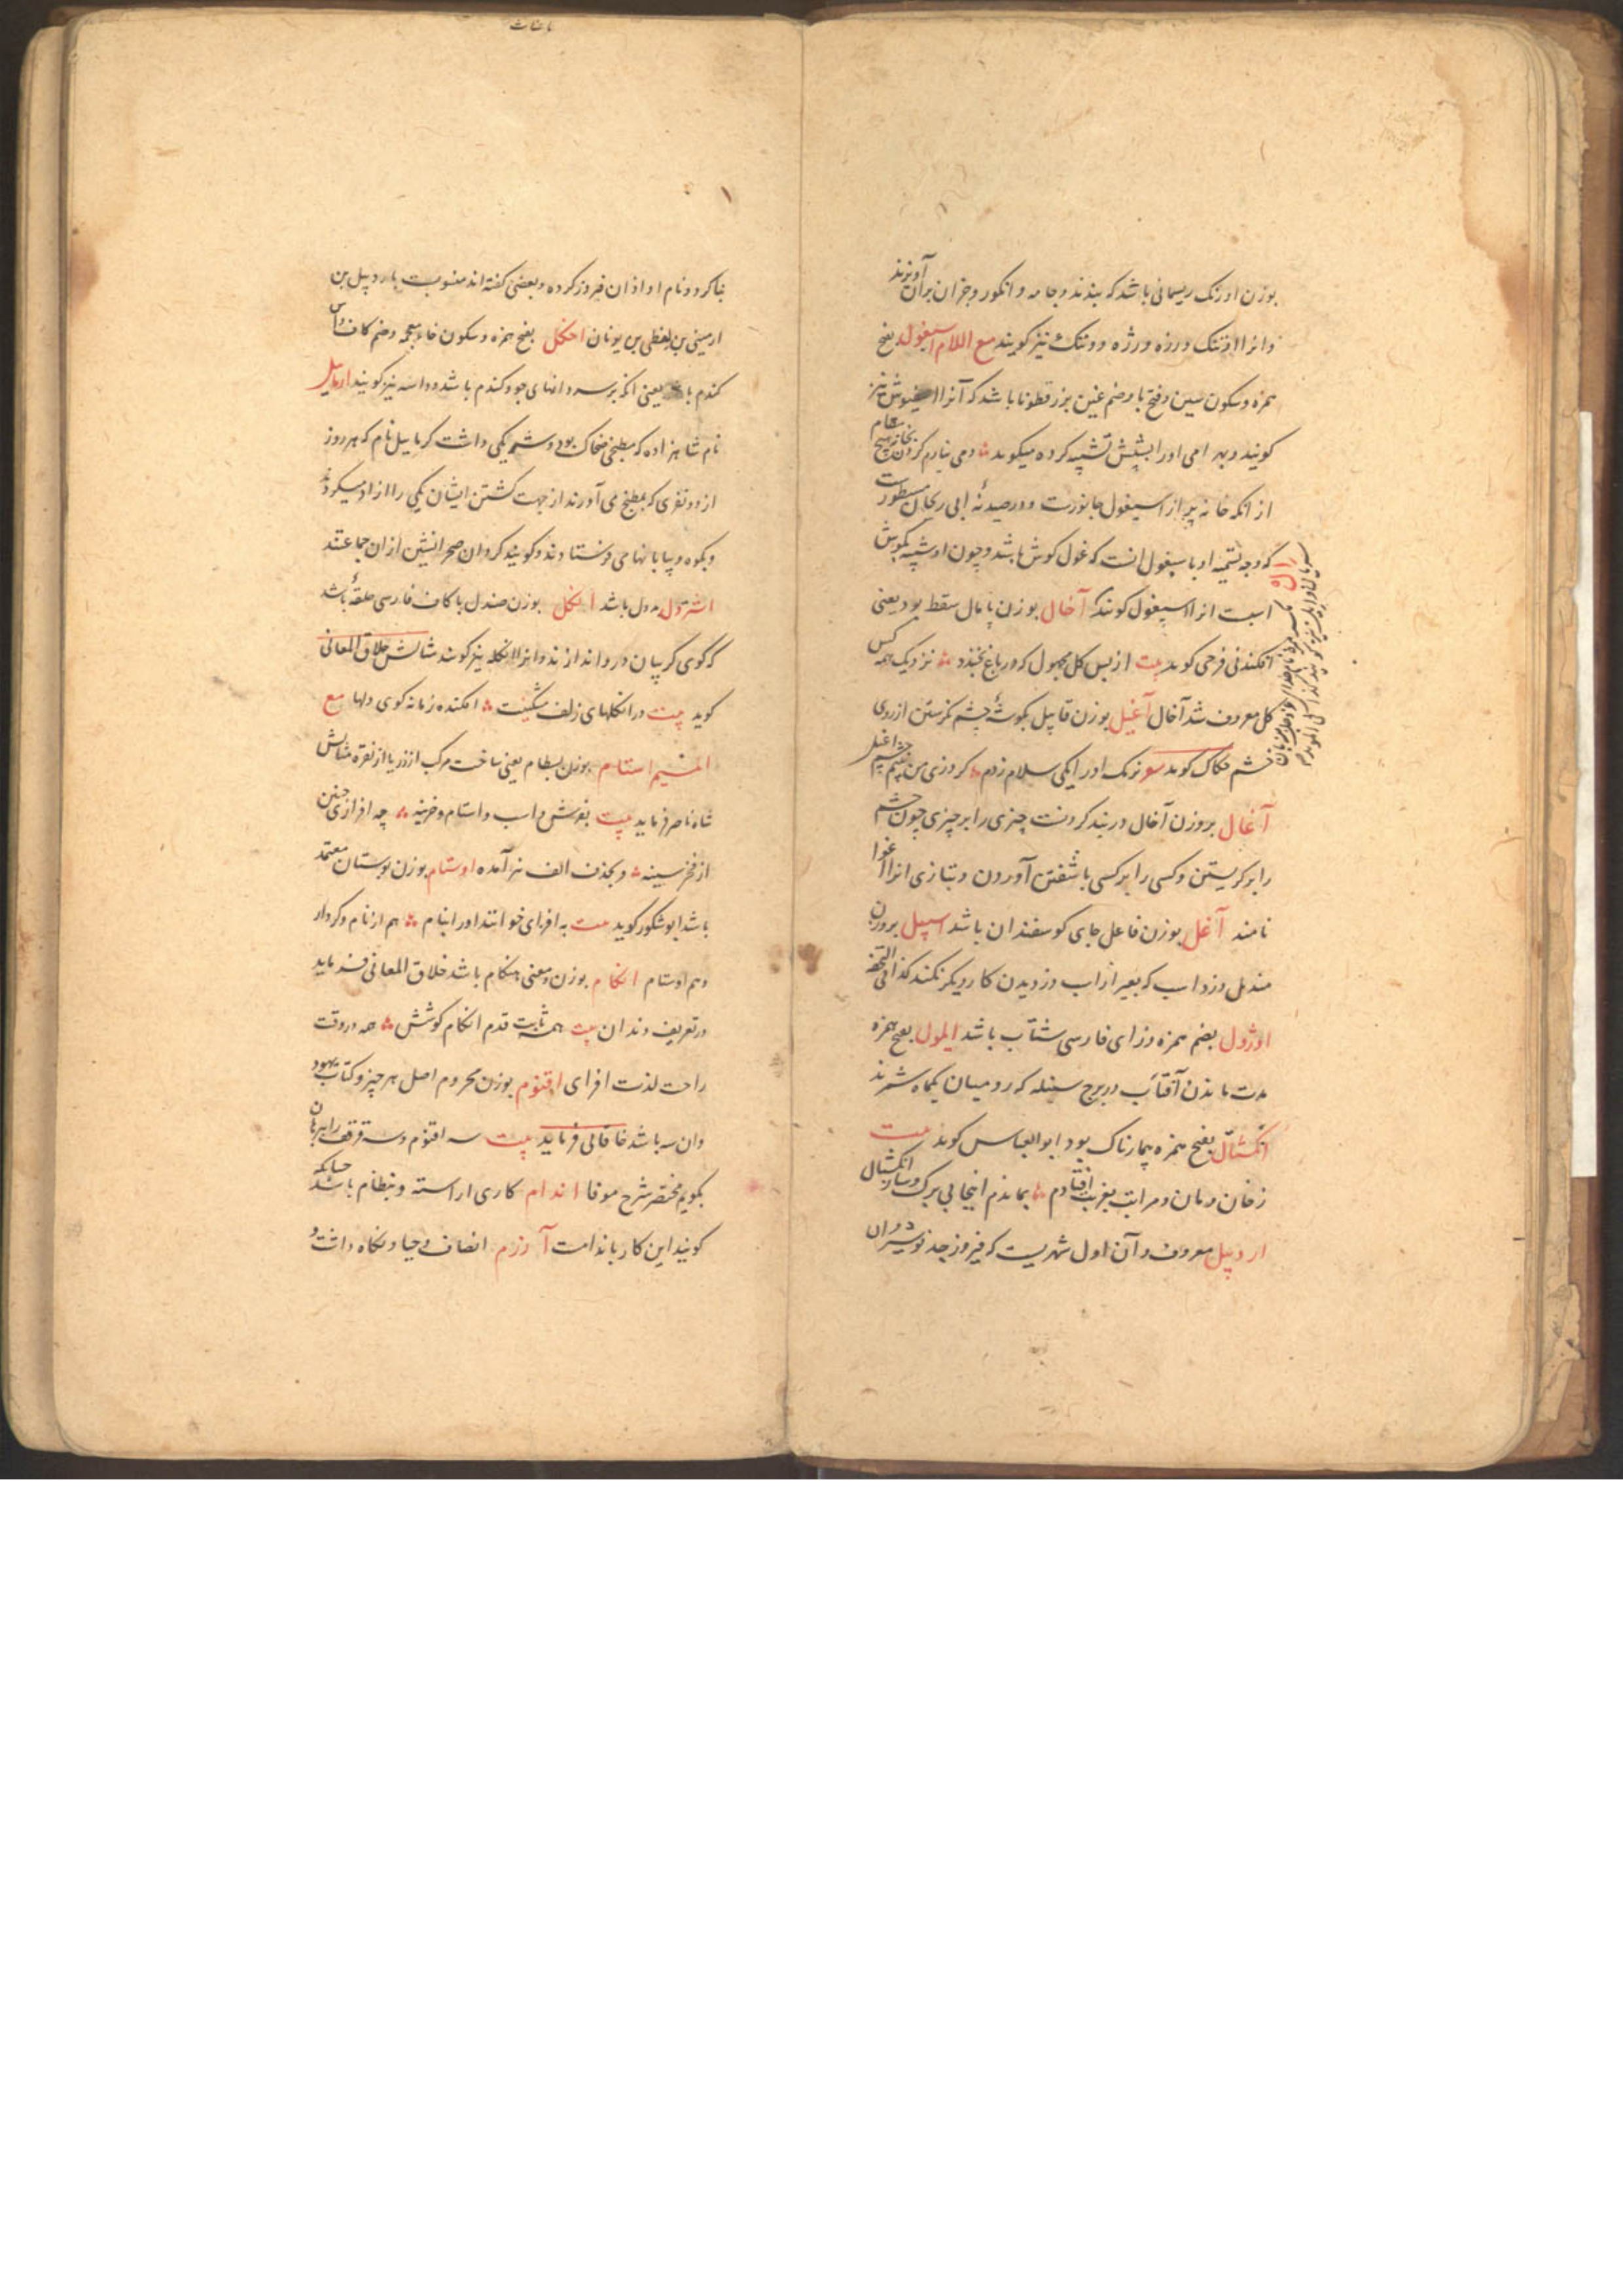 بوزن اورنک ریسمانی باشد که بندند و جامه و انکور و جزان بران آویزند
و انرا اوننک و رزه و رژه و ونتک نیز کویند مع اللام اسپغول بفتح
همزه و سکون سین و فتح با و ضم غین بزرقطونا باشد که آنرا نیز
کویند و بهرامی اورا بشپش تشبیه کرده میکوید دمی نیارم کردن بخانه هیچ مقام
از انکه خانه پر از اسپغول جانورست و در صیدنه ابی ریحان مسطورست
که وجه تسمیه او باسپغول انست که غول کوش باشد و چون او شبیه بکوش
اسبت انرا اسپغول کویند آخال بوزن پامال سقط بود یعنی
افکندنی فرخی کوید بیت از بس کل مجهول که در باغ بخندید نزدیک همه کس
کل معروف شد آخال آغیل بوزن قابیل بکوشهٔ چشم نکرستن از روی
خشم حکاک کوید نرمک اورا یکی سلام زدم کرد زی من بچشم چشم اغیل
آغال بروزن آخال در بند کردنست چیزی را بر چیزی چون چشم
را بر کریستن و کسی را بر کسی باشفتن آوردن و بتازی انرا اغوا
نامند آغل بوزن فاعل جای کوسفندان باشد اسپیل بروزن
مندیل دزد اسب که بغیر از اسب دزدیدن کار دیکر نکند کذا فی التحفه
اوژول بضم همزه و زای فارسی شتاب باشد ایلول بفتح همزه
مدت ماندن آفتاب در برج سنبله که رومیان یکماه شمرند
انکشتال بفتح همزه بیمارناک بود ابوالعباس کوید بیت
ز خان و مان و مراتب بغربت افتادم بماندم اینجا بی برک و ساز و انکشتال
اردبیل معروف و آن اول شهریست که فیروز جد نوشیروان
بنا کرد و نام او اذان فیروز کرده و بعضی کفته اند منسوبست باردبیل بن
ارمینی بن لفظی بن یونان اخکل بفتح همزه و سکون خاء معجمه و ضم کاف داس
کندم یعنی انکه بر سر دانهای جو و کندم باشد و داسه نیز کویند ارمایل
نام شاهزاده که مطبخی ضحاک بود و شریکی داشت کرمایل نام که هر روز
از دو نفری که بمطبخ می آوردند از جهت کشتن ایشان یکی را ازاد میکردند
و بکوه و بیابانها می فرستادند و کویند کردان صحرانشین از ان جماعتند
اشترل دول باشد انکل بوزن صندل با کاف فارسی حلقهٔ باشد
که کوی کریبان در و اندازند و انرا انکله نیز کویند مثالش خلاق المعانی
کوید بیت در انکلهای زلف مشکینت افکنده زمانه کوی دلها مع
المیم استام بوزن بسطام یعنی ساخت مرکب از زر یا از نقره مثالش
شاه ناصر فرماید بیت بفرش و اسب و استام و خزینه چه افرازی چنین
از فخر سینه و بحذف الف نیز آمده اوستام بوزن بوستان معتمد
باشد ابوشکور کوید بیت به افزای خوانند اورا بنام هم از نام و کردار
و هم اوستام انکام بوزن و معنی هنکام باشد خلاق المعانی فرماید
در تعریف دندان بیت همه ثابت قدم انکام کوشش همه در وقت
راحت لذت افزای اقنوم بوزن محروم اصل هر چیز و کتاب یهود
و ان سه باشد خاقانی فرماید بیت سه اقنوم و سه قرقف را ببرهان
بکویم مختصر شرح موفا اندام کاری اراسته و بنظام باشد چنانکه
کویند این کار باندامست آزرم انصاف و حیا و نکاه داشت و